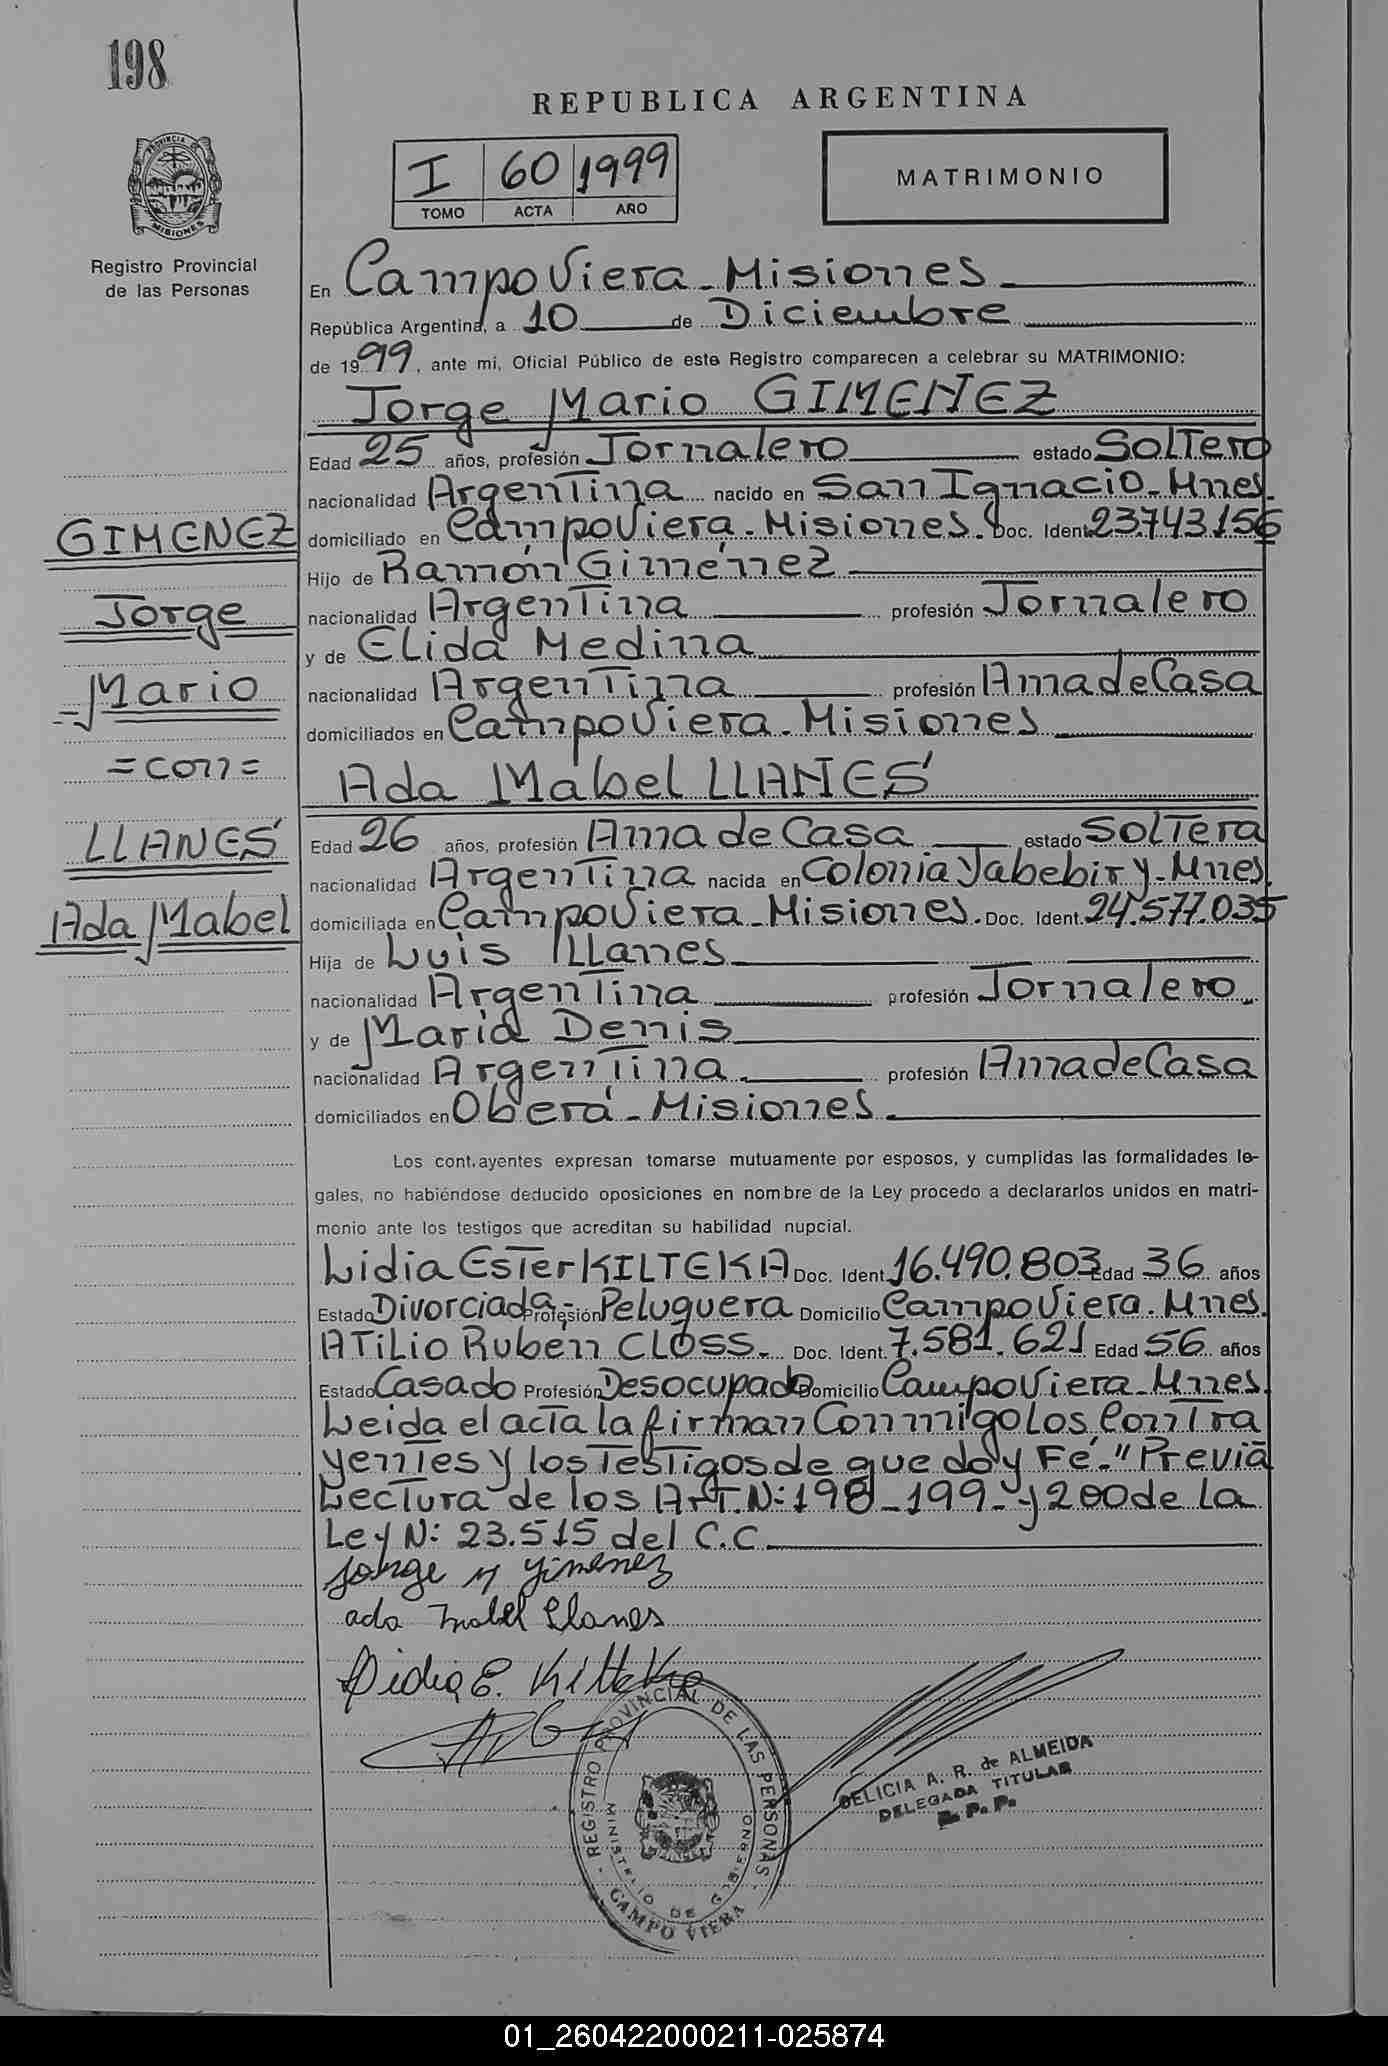 198
REPUBLICA ARGENTINA
PROVINCIA DE
MISIONES
I 60 1999
TOMO ACTA AÑO
MATRIMONIO
Registro Provincial
de las Personas
En Campo Viera - Misiones
República Argentina, a 10 de Diciembre
de 1999, ante mi, Oficial Público de este Registro comparecen a celebrar su MATRIMONIO:
Jorge Mario GIMENEZ
Edad 25 años, profesión Jornalero estado Soltero
nacionalidad Argentina nacido en San Ignacio - Mnes.
domiciliado en Campo Viera - Misiones. Doc. Ident. 23.743.156
Hijo de Ramón Giménez
nacionalidad Argentina profesión Jornalero
y de Elida Medina
nacionalidad Argentina profesión Ama de Casa
domiciliados en Campo Viera - Misiones
GIMENEZ
Jorge
Mario
=con=
LLANES
Ada Mabel
Ada Mabel LLANES
Edad 26 años, profesión Ama de Casa estado Soltera
nacionalidad Argentina nacida en Colonia Yabebiry - Mnes.
domiciliada en Campo Viera - Misiones. Doc. Ident. 24.577.035
Hija de Luis Llanes
nacionalidad Argentina profesión Jornalero
y de María Denis
nacionalidad Argentina profesión Ama de Casa
domiciliados en Oberá - Misiones
Los cont.ayentes expresan tomarse mutuamente por esposos, y cumplidas las formalidades le-
gales, no habiéndose deducido oposiciones en nombre de la Ley procedo a declararlos unidos en matri-
monio ante los testigos que acreditan su habilidad nupcial.
Lidia Ester KILTEKA Doc. Ident. 16.490.803 Edad 36 años
Estado Divorciada - Profesión Peluquera Domicilio Campo Viera. Mnes.
Atilio Ruben CLOSS. Doc. Ident. 7.581.621 Edad 56 años
Estado Casado Profesión Desocupado Domicilio Campo Viera - Mnes.
Leida el acta la firman Conmigo Los Contra
yentes y los Testigos de que doy Fé. "Previa
Lectura de los Art. N: 198 - 199 - y 200 de la
Ley N: 23.515 del C.C
Jorge M Gimenez
ada Mabel Llanes
Lidia E. Kilteka
REGISTRO PROVINCIAL DE LAS PERSONAS
MINISTERIO DE GOBIERNO
CAMPO VIERA
DELICIA A. R. de ALMEIDA
DELEGADA TITULAR
R. P. P.
01_260422000211-025874